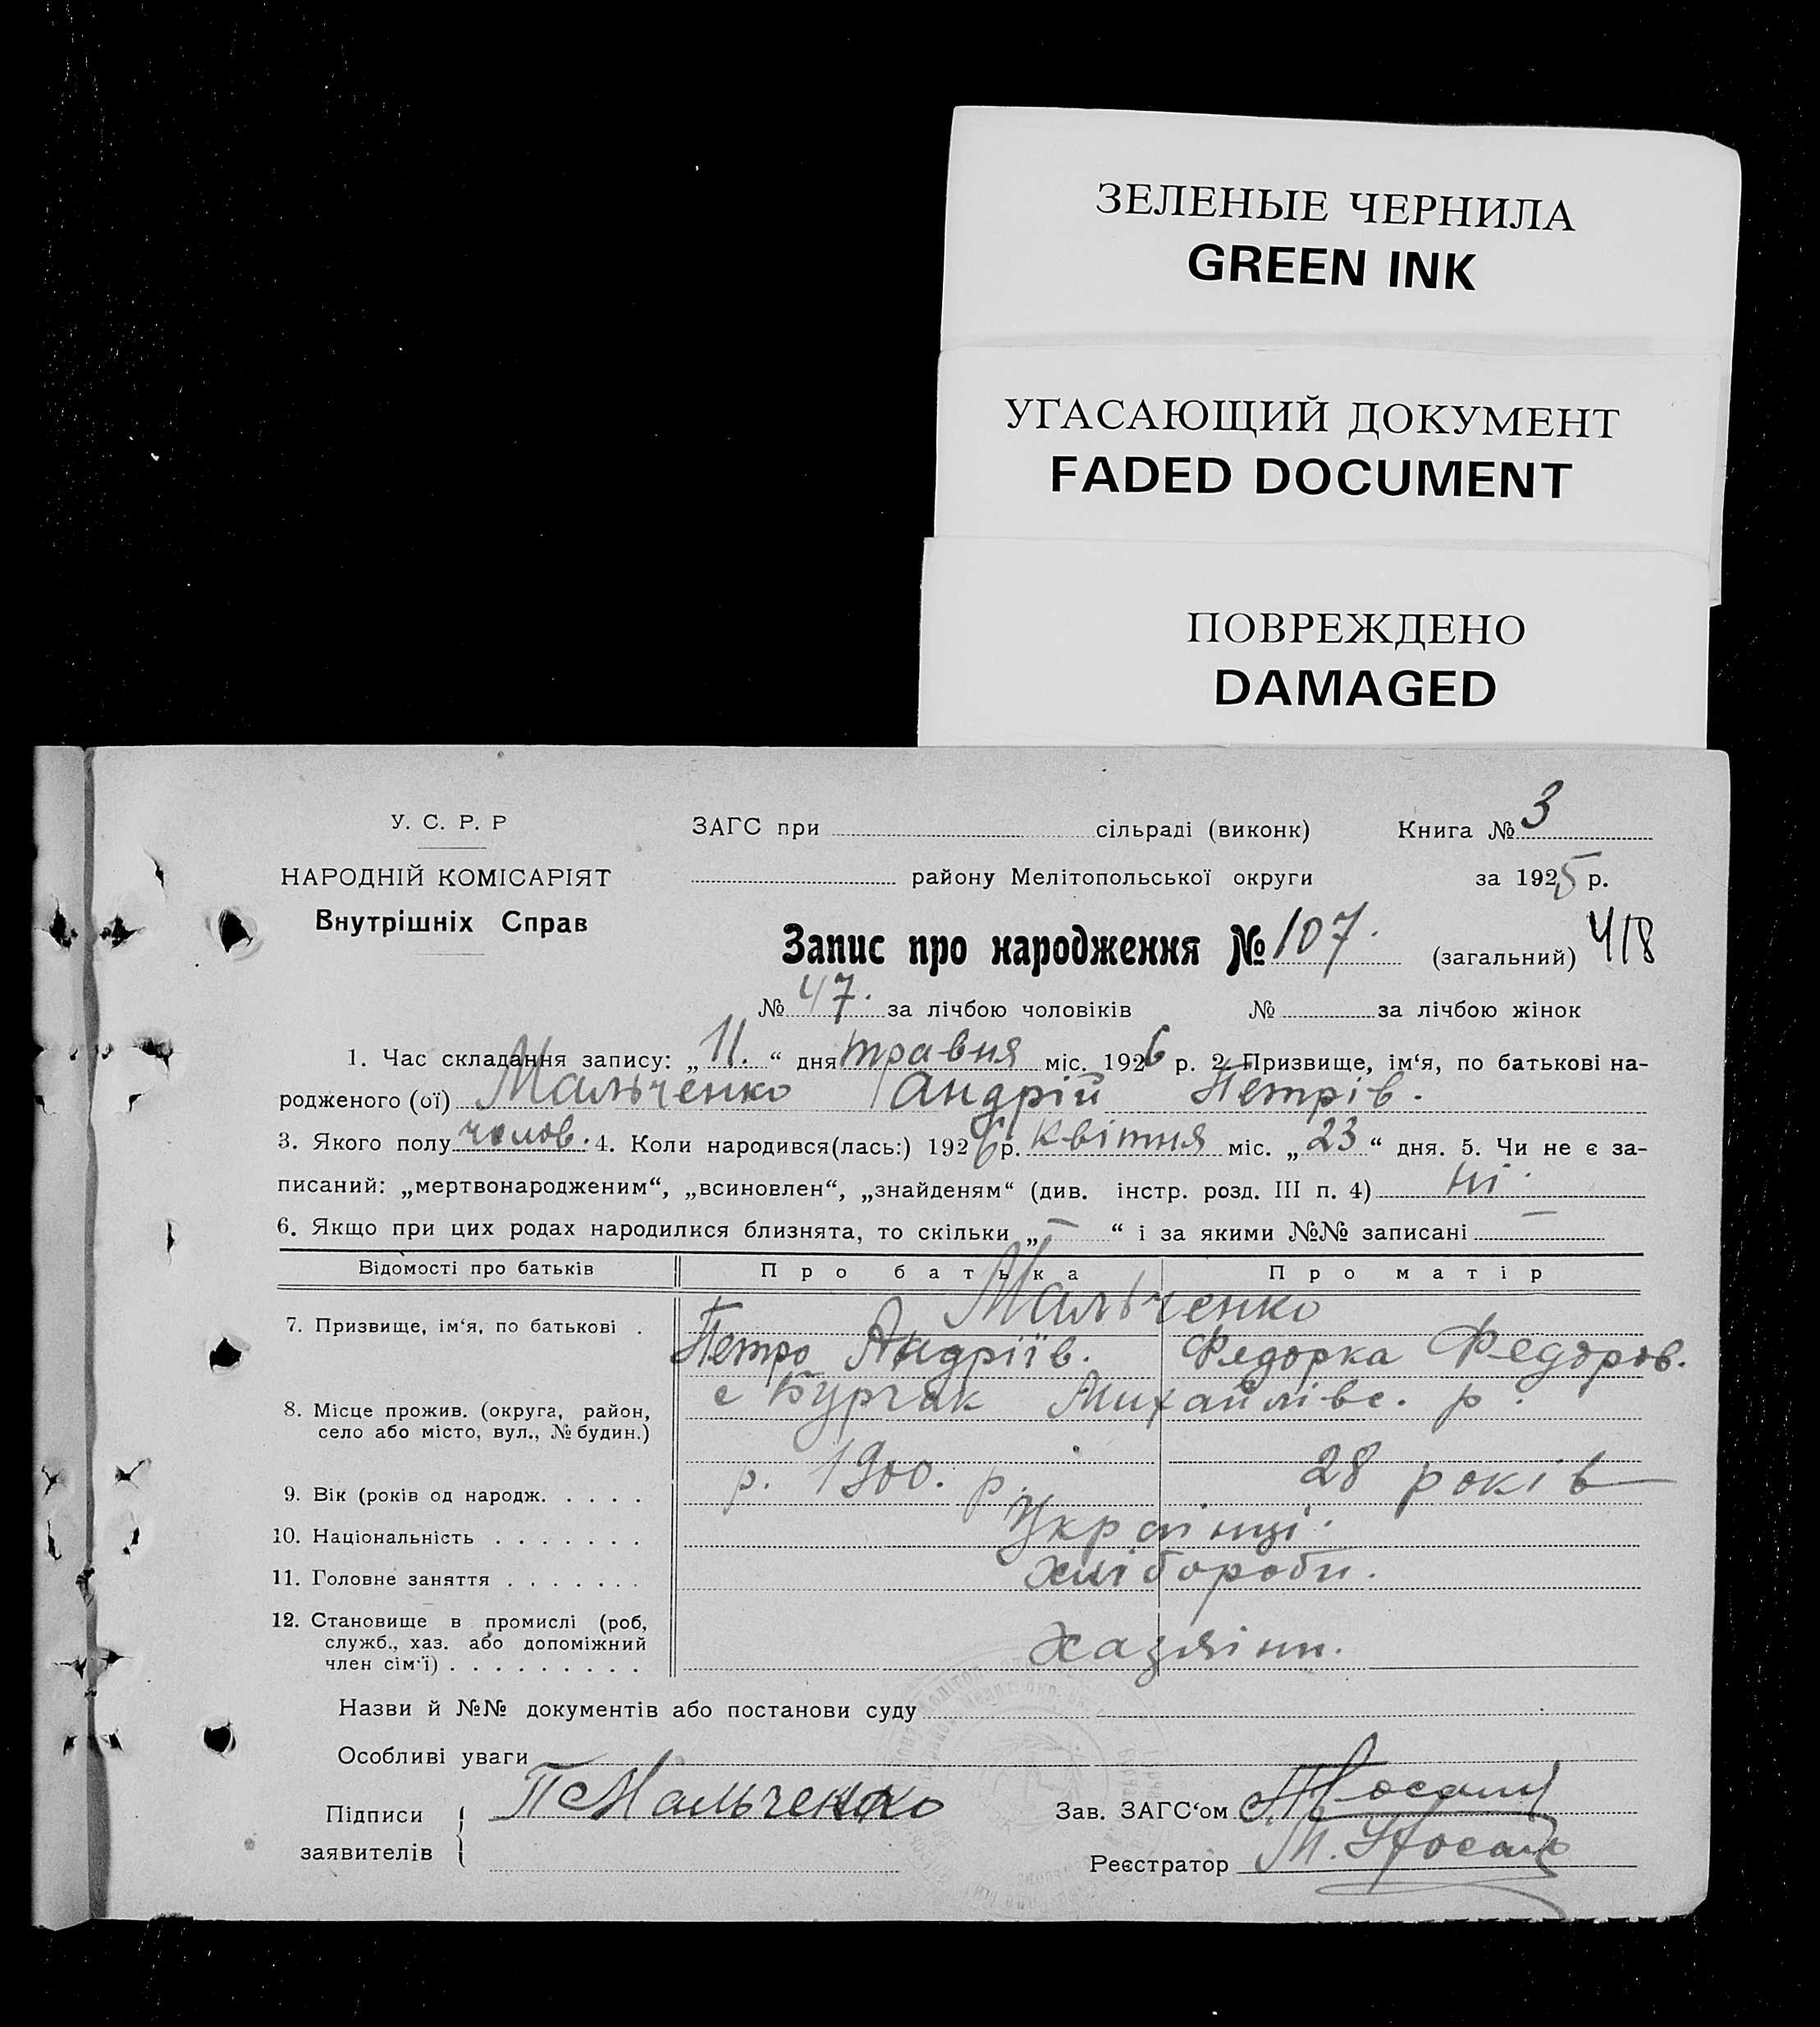 ЗЕЛЕНЫЕ ЧЕРНИЛА
GREEN INK
УГАСАЮЩИЙ ДОКУМЕНТ
FADED DOCUMENT
ПОВРЕЖДЕНО
DAMAGED
У. С. Р. Р
НАРОДНІЙ КОМІСАРІЯТ
Внутрішніх Справ
ЗАГС при сільраді (виконк) Книга № 3
району Мелітопольської округи за 1925 р.
Запис про народження № 107. (загальний) 418
№ 47. за лічбою чоловіків № за лічбою жінок
1. Час складання запису: „11.“ дня травня міс. 1926 р. 2. Призвище, ім‘я, по батькові на-
родженого (ої) Мальченко Андрій Петрів.
3. Якого полу челов. 4. Коли народився(лась:) 1926 р. квітня міс. „23“ дня. 5. Чи не є за-
писаний: „мертвонародженим“, „всиновлен“, „знайденям“ (див. інстр. розд. III п. 4) ні
6. Якщо при цих родах народилися близнята, то скільки „—“ і за якими №№ записані —
Відомості про батьків Про батька Про матір
Мальченко
7. Призвище, ім‘я, по батькові . Петро Андріїв. Федорка Федоров.
8. Місце прожив. (округа, район, с Бурчак Михайлівс. р.
село або місто, вул., № будин.)
9. Вік (років од народж. . . . . р. 1900. р. 28 років
10. Національність . . . . . . . Українці.
11. Головне заняття . . . . . . . хлібороби.
12. Становище в промислі (роб,
служб., хаз. або допоміжний
член сім‘ї) . . . . . . . . . Хазяіни.
Назви й №№ документів або постанови суду
Особливі уваги
Підписи заявителів { П Мальченко
Зав. ЗАГС‘ом Носань
Реєстратор М. Носань